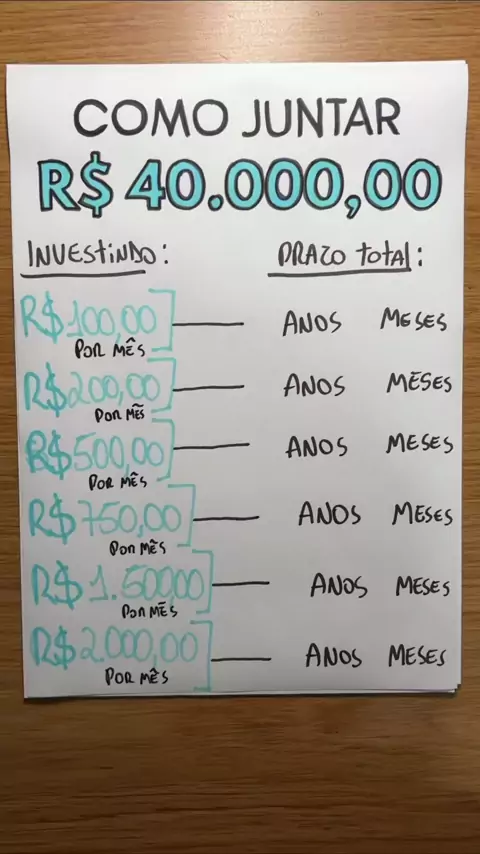 COMO JUNTAR
R$ 40.000,00
INVESTINDO: PRAZO total:
R$100,00 ANOS MESES
POR MÊS
R$200,00 ANOS MESES
POR MÊS
R$500,00 ANOS MESES
POR MÊS
R$750,00 ANOS MESES
POR MÊS
R$1.500,00 ANOS MESES
POR MÊS
R$2.000,00 ANOS MESES
POR MÊS